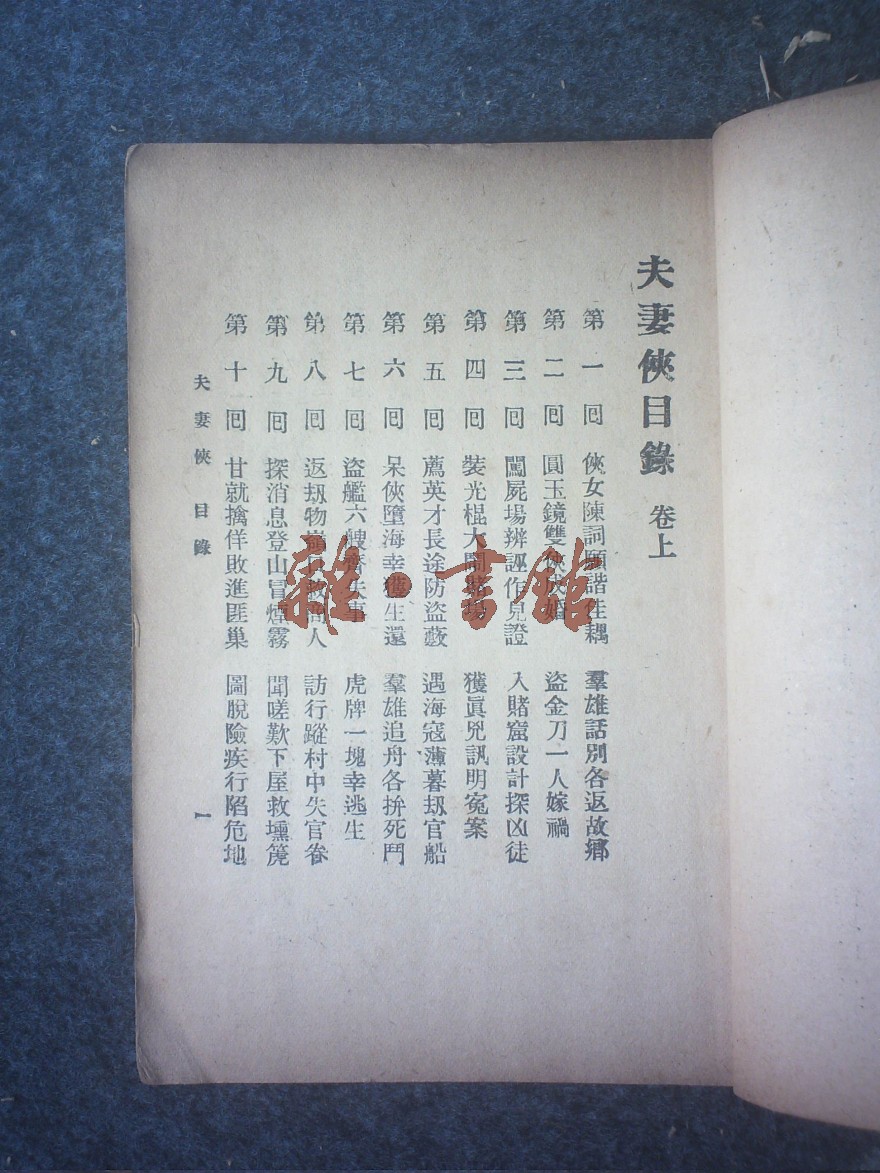 夫妻俠目錄 卷上
第一回 俠女陳詞願諧佳耦 羣雄話別各返故鄉
第二回 圓玉鏡雙俠 婚 盜金刀一人嫁禍
第三回 闖屍場辨誣作見證 入賭窟設計探凶徒
第四回 裝光棍大鬧賭場 獲眞兇訊明寃案
第五回 薦英才長途防盜藪 遇海寇薄暮刼官船
第六回 呆俠墮海幸獲生還 羣雄追舟各拚死鬥
第七回 盜艦六艘齊失事 虎牌一塊幸逃生
第八回 返刼物 人 訪行蹤村中失官眷
第九回 探消息登山冒煙霧 聞嗟歎下屋救壎篪
第十回 甘就擒佯敗進匪巢 圖脫險疾行陷危地
夫妻俠 目錄
一
雜·書館